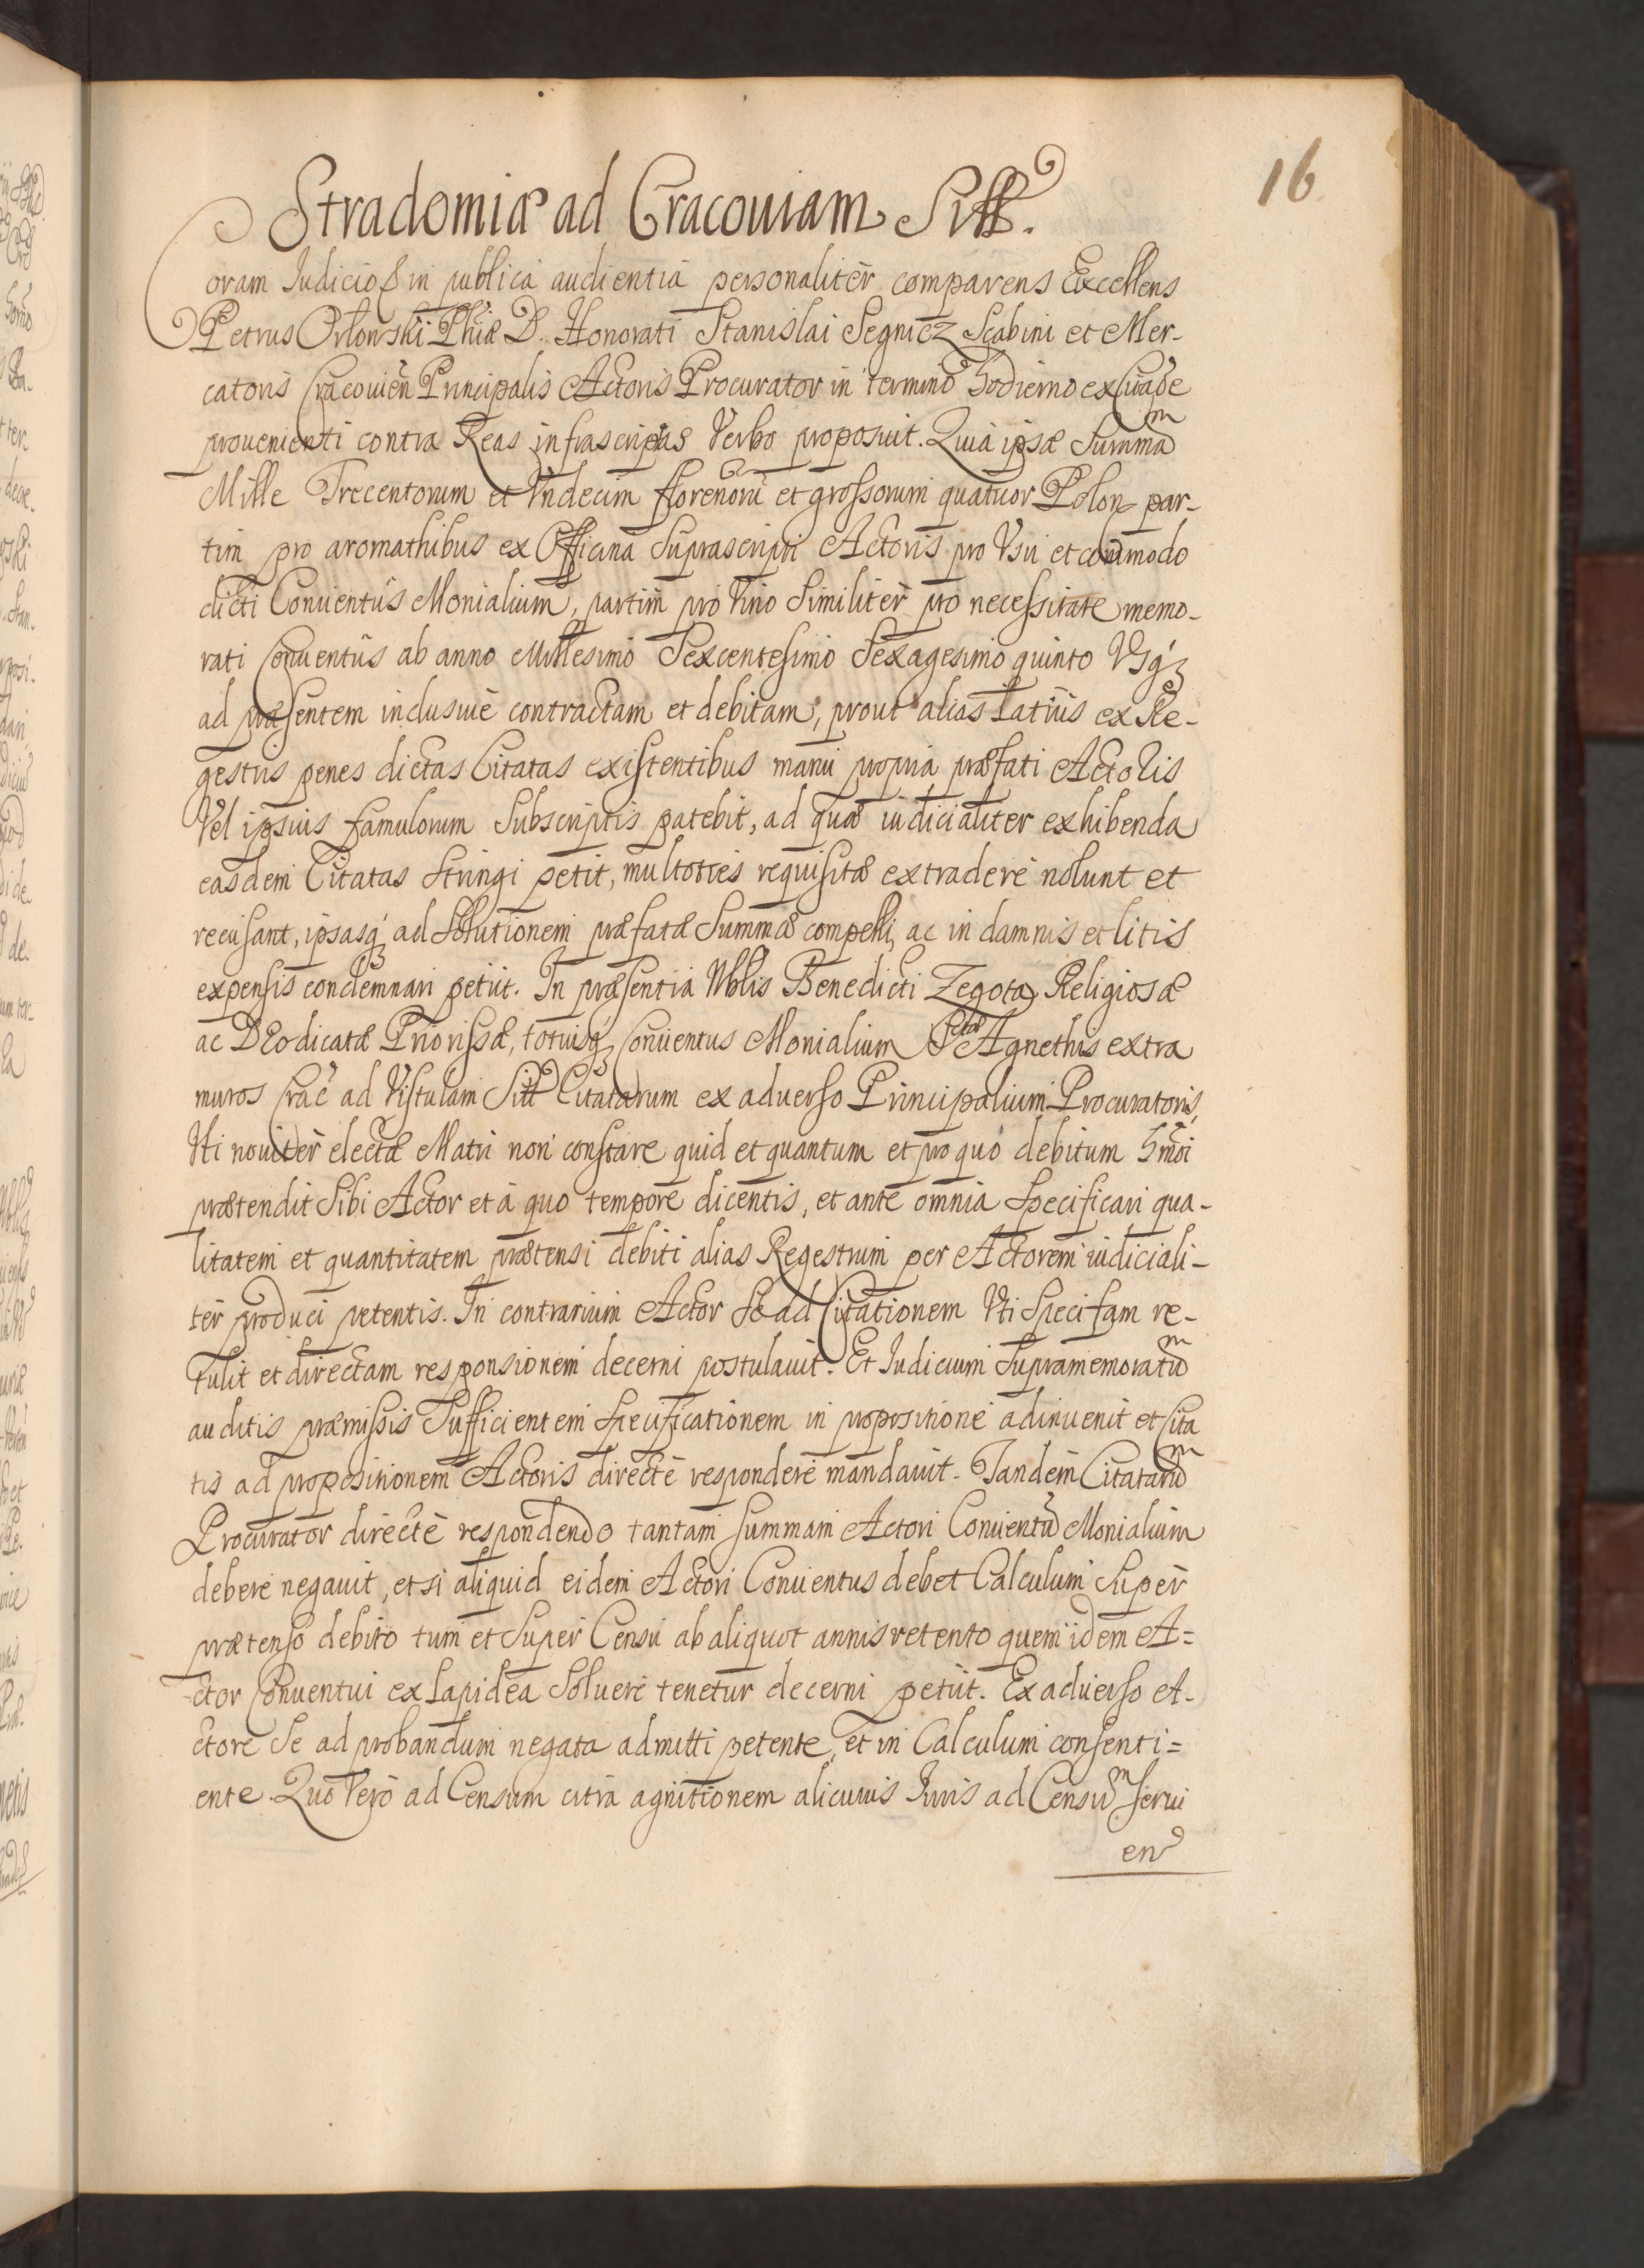 16
Stradomiæ ad Cracouiam Sitt.
Coram Iudicio & in publica audientia personaliter comparens Excellens
Petrus Orlowski Phiæ D. Honorati Stanislai Segnicz Scabini et Mer-
catoris Cracouien Principalis Actoris Procurator in termino hodierno ex
prouenienti contra Reas infrascriptas Verbo proposuit. Quia ipsæ Summam
Mille Trecentorum et Vndecim florenorū et grossorum quatuor Polon par-
tim pro aromathibus ex Officina Suprascripti Actoris pro Vsu et commodo
dicti Conuentûs Monialium, partim pro Vino Similiter pro necessitate memo-
rati Conuentûs ab anno Millesimo Sexcentesimo Sexagesimo quinto Vsq́
ad præsentem inclusiuè contractam et debitam, prout alias Latiùs ex Re-
gestris penes dictas Citatas existentibus manu propria præfati Actoris
Vel ipsius famulorum Subscriptis patebit, ad quæ iudicialiter exhibenda
easdem Citatas Stringi petit, multoties requisitæ extradere nolunt et
recusant, ipsasq́ ad Solutionem præfatæ Summæ compelli, ac in damnis et litis
expensis condemnari petiit. In præsentia Nblis Benedicti Zegota Religiosæ
ac Deodicatæ Priorissæ, totiusq́ Conuentus Monialium S. Agnethis extra
muros Crac̃ ad Vistulam Sitt Citatarum ex aduerso Principalium Procuratoris,
Vti nouiter electæ Matri non constare quid et quantum et pro quo debitum hmōi
prætendit Sibi Actor et à quo tempore dicentis, et ante omnia Specificari qua-
litatem et quantitatem prætensi debiti alias Regestrum per Actorem iudiciali-
ter produci petentis. In contrarium Actor Se ad Citationem Vti Specifam re-
tulit et directam responsionem decerni postulauit. Et Iudicium Supramemoratum
auditis præmissis Sufficientem Specificationem in propositione adinuenit et Cita
tis ad propositionem Actoris directè respondere mandauit. Tandem Citatarum
Procurator directè respondendo tantam summam Actori Conuentum Monialium
debere negauit, et si aliquid eidem Actori Conuentus debet Calculum Super
prætenso debito tum et Super Censu ab aliquot annis retento quem idem A=
ctor Conuentui ex Lapidea Soluere tenetur decerni petiit. Ex aduerso A-
ctore Se ad probandum negata admitti petente, et in Calculum consenti=
ente. Quo Vero ad Censum citra agnitionem alicuius Iuris ad Censum serui
en